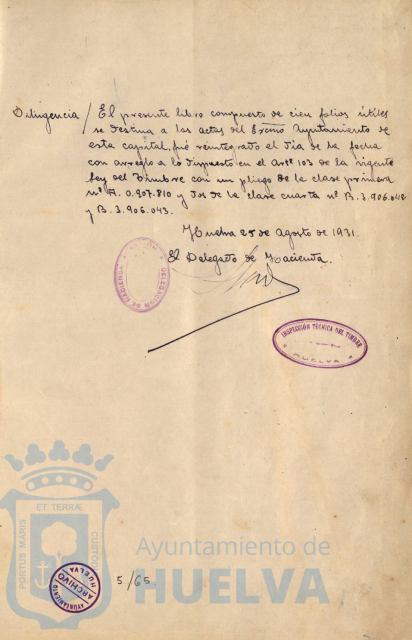 Delingencia / El presente libro compuesto de cien folios útiles
se destina a las actas del Excmo Ayuntamiento de
esta capital, fué reintegrado el día de la fecha
con arreglo a lo dispuesto en el artº 103 de la vigente
Ley del Timbre con un pliego de la clase primera
nº A. 0.907.810 y dos de la clase cuarta nº B. 3.906.042
y B. 3.906.043.
Huelva 25 de Agosto de 1931.
El Delegado de Hacienda.
DELEGACION DE HACIENDA
INSPECCIÓN TÉCNICA DEL TIMBRE
HUELVA
PORTUS MARIS
ET. TERRÆ
CUSTO
Ayuntamiento de
HUELVA
AYUNTAMIENTO DE HUELVA
ARCHIVO
5/65.